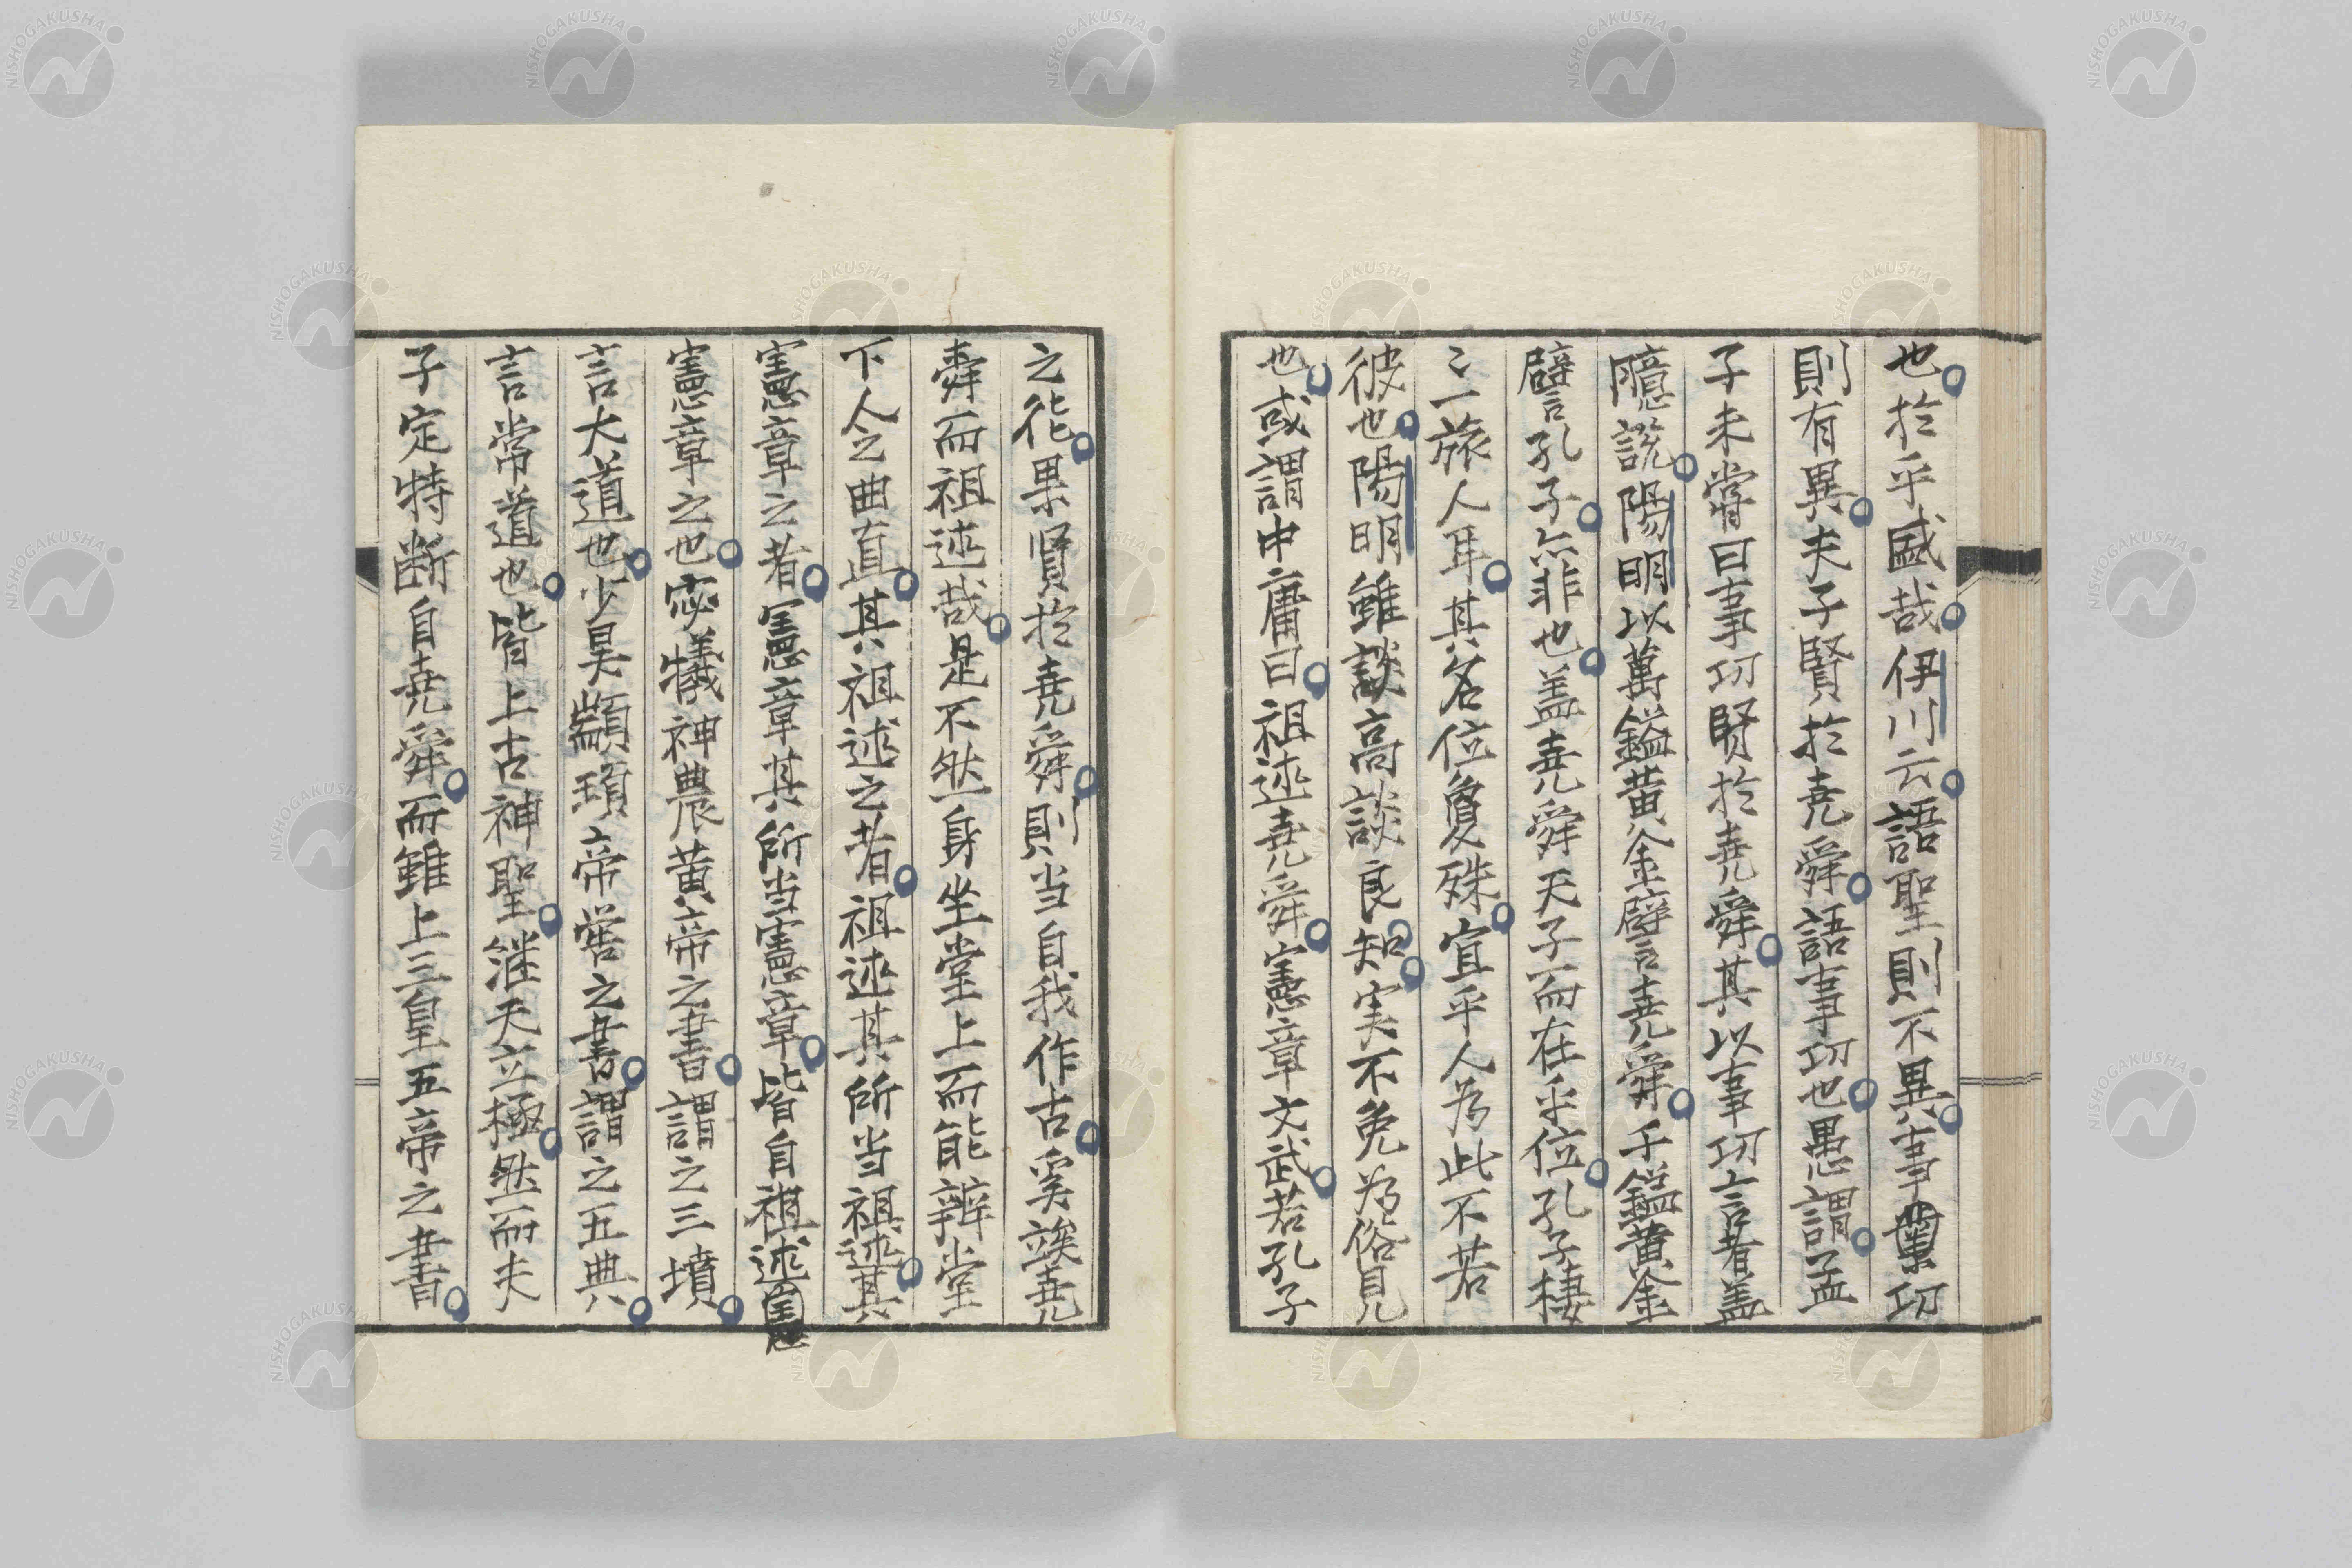 也於乎盛哉伊川云語聖則不異事功
則有異夫子賢於堯舜語事功也愚謂孟
子未嘗曰事功賢於堯舜其以事功言者盖
臆説陽明以萬鎰黄金譬堯舜千鎰黄金
譬孔子亦非也盖堯舜天子而在乎位孔子棲
〻一旅人耳其名位敻殊宜乎人為此不若
彼也陽明雖談高談良知実不免為俗見
也或謂中庸曰祖述堯舜憲章文武若孔子
之徳果賢於堯舜則当自我作古奚竢堯
舜而祖述哉是不然身坐堂上而能辨堂
下人之曲直其祖述之者祖述其所当祖述其
憲章之者憲章其所当憲章皆自祖述
憲章之也宓犧神農黄帝之書謂之三墳
言大道也少昊顓頊帝嚳之書謂之五典
言常道也皆上古神聖継天立極然而夫
子定特断自堯舜而雖上三皇五帝之書
NISHOGAKUSHA